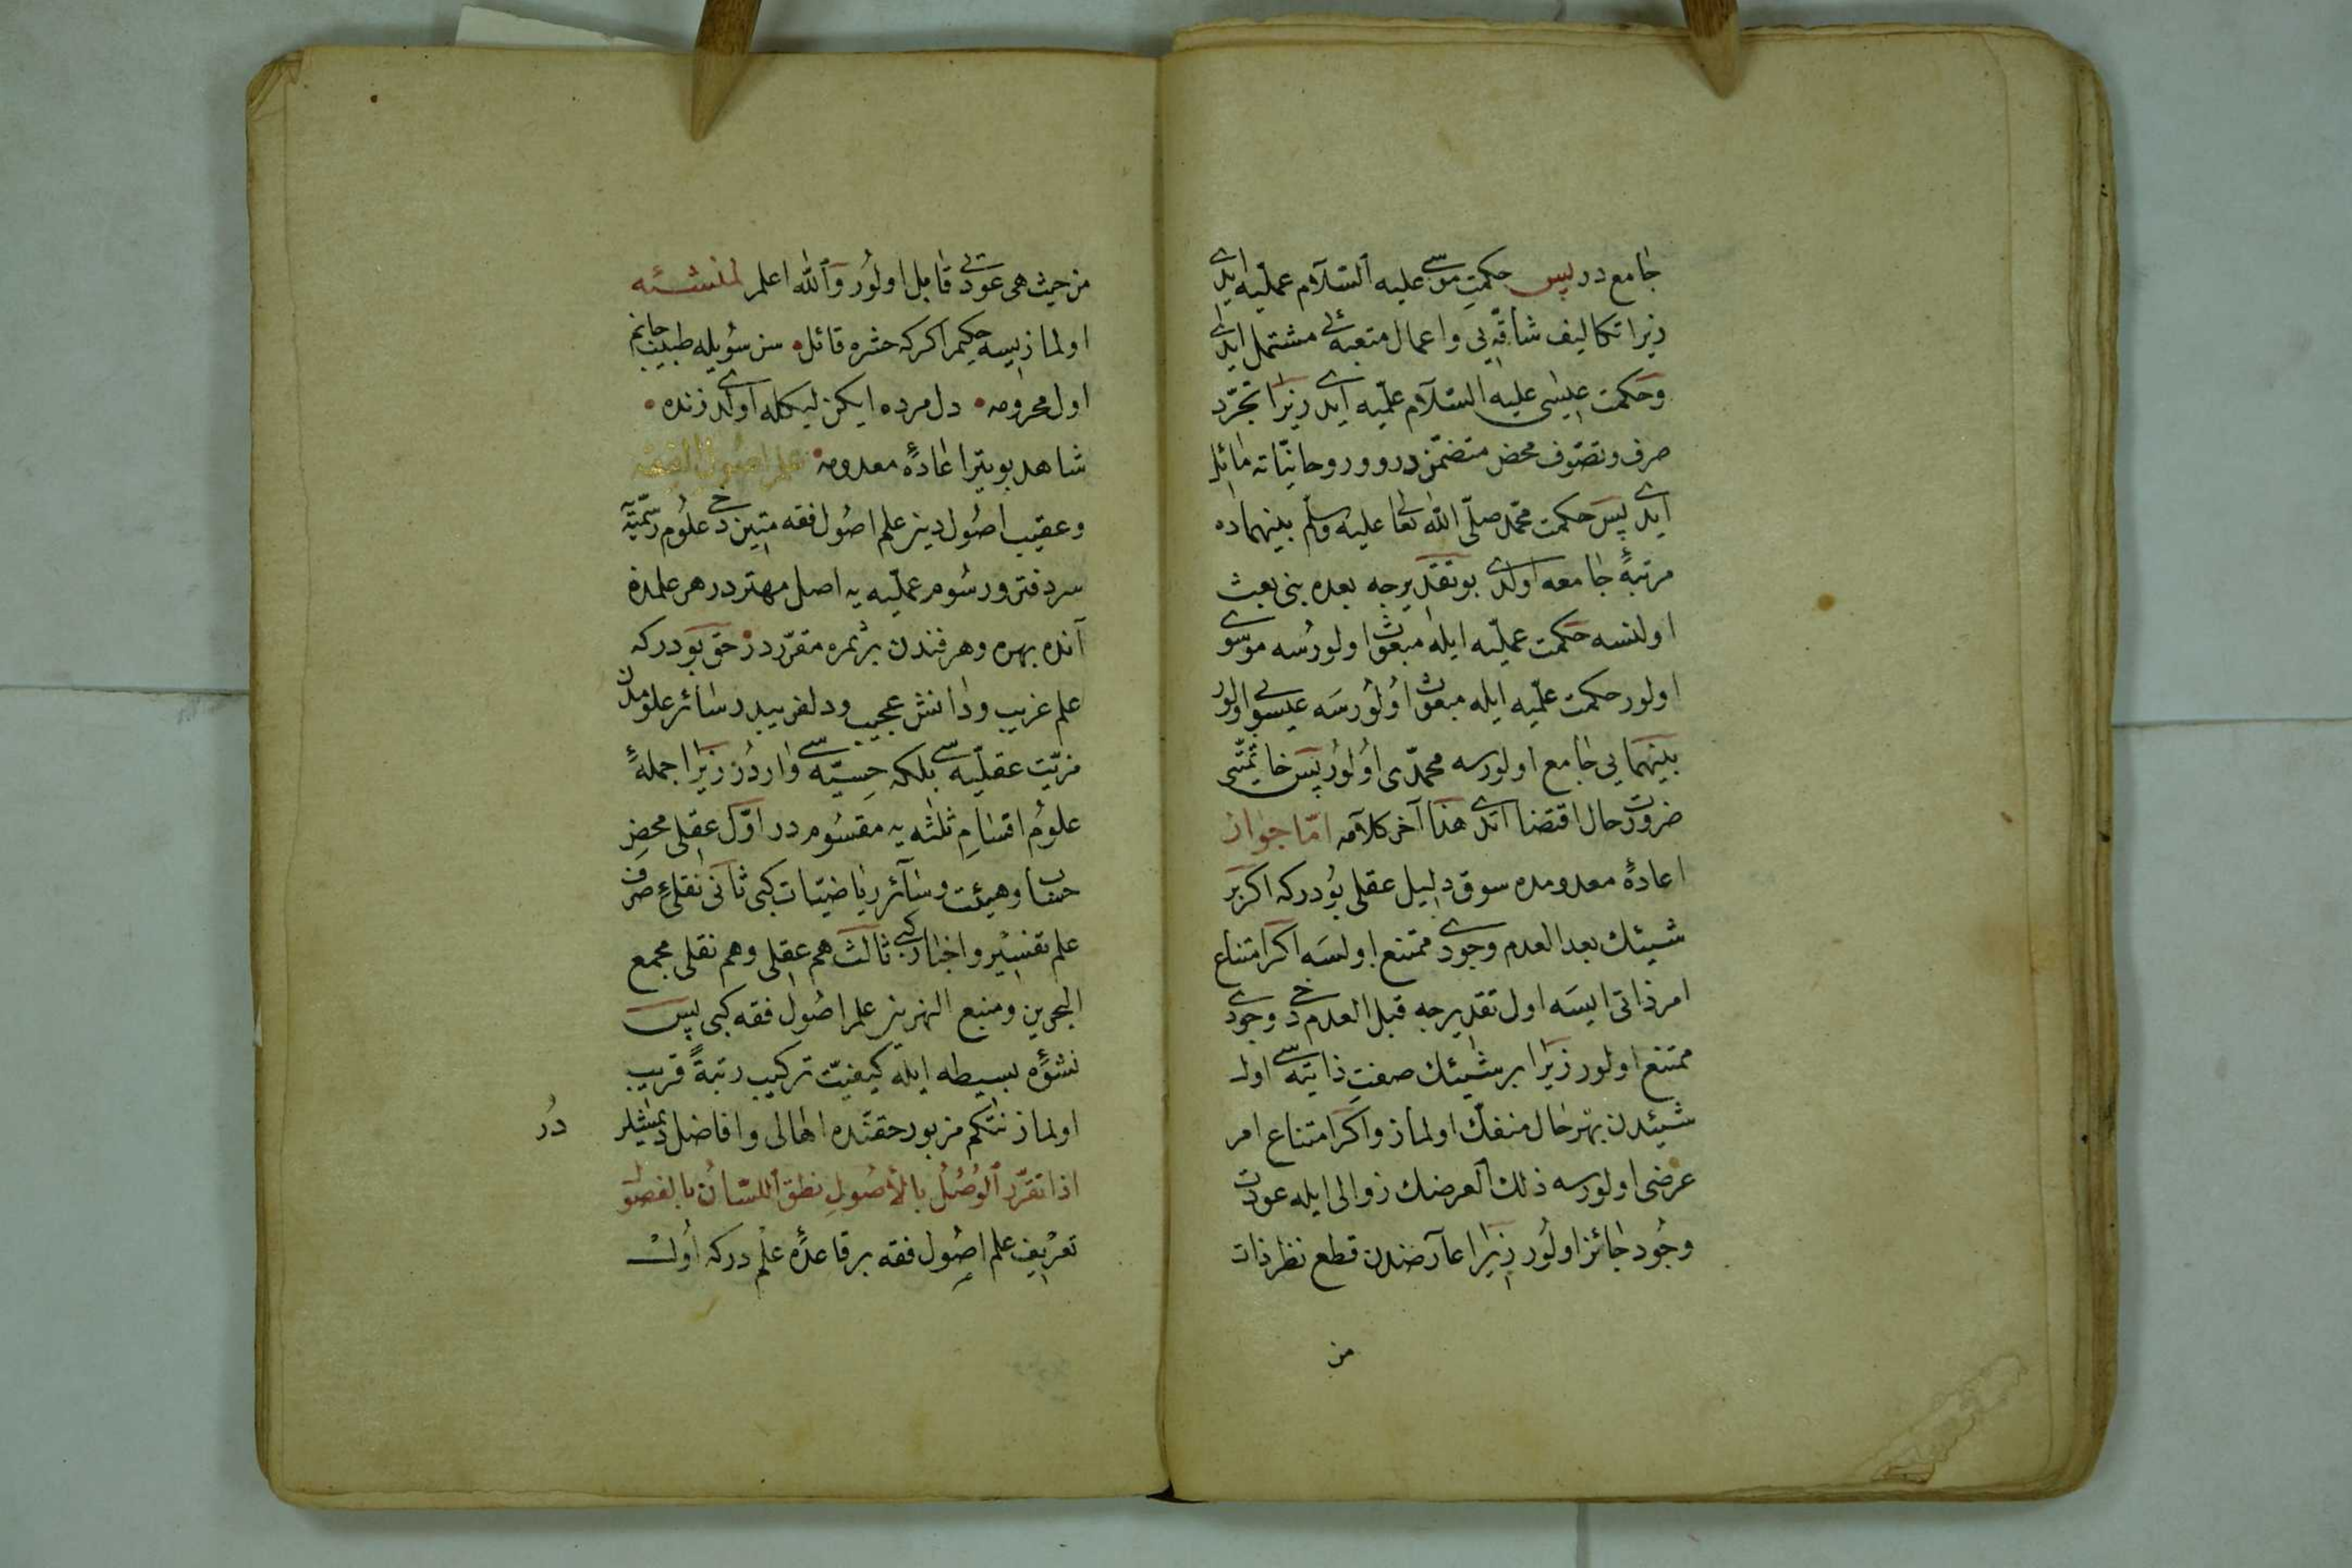 جامع در پس حكمت موسى عليه السلام عمليه ايدى
زيرا تكاليف شاقه يى و اعمال متعبه ئى مشتمل ايدى
و حكمت عيسى عليه السلام علميه ايدى زيرا تجرد
صرف و تصوف محض متضمن در و روحانياته مائل
ايدى پس حكمت محمد صلى الله تعالى عليه وسلم بينهماده
مرتبهٔ جامعه اولدى بو تقديرجه بعده بنى بعث
اولنسه حكمت عمليه ايله مبعوث اولورسه موسوى
اولور حكمت علميه ايله مبعوث اولورسه عيسوى اولور
بينهمايى جامع اولورسه محمدى اولور پس خاتميتى
ضرورت حال اقتضا ائتدى هذا آخر كلامه اما جواز
اعادهٔ معدومده سوق دليل عقلى بودركه اكر بر
شيئك بعد العدم وجودى ممتنع اولسه اكر امتناع
امر ذاتى ايسه اول تقديرجه قبل العدم دخى وجودى
ممتنع اولور زيرا بر شيئك صفت ذاتيه سى اول
شيئدن بهر حال منفك اولماز و اكر امتناع امر
عرضى اولورسه ذلك العرضك زوالى ايله عودت
وجود جائز اولور زيرا عارضدن قطع نظر ذات
من
من حيث هى عودتى قابل اولور والله اعلم لمنشئه
اولماز ايسه حكيم اكركه حشره قائل سن سويله طبيب جانم
اول محرومه دل مرده ايكن ليكله اولدى زنده
شاهد بو يتر اعادهٔ معدومه علم اصول الفقه
و عقيب اصول دين علم اصول فقه متين دخى علوم رسميه
سردفتر و رسوم عمليه يه اصل مهتر در هر علمده
آنده بهره و هر فندن بر ثمره مقرردر حق بودركه
علم غريب و دانش عجيب و دلفريبدر سائر علومدن
مزيت عقليه سى بلكه حسيه سى واردر زيرا جملهٔ
علوم اقسام ثلثه يه مقسوم در اول عقلى محض
حساب و هيئت و سائر رياضيات كبى ثانى نقلئ صرف
علم تفسير و اخبار كبى ثالث هم عقلى و هم نقلى مجمع
البحرين و منبع النهرين علم اصول فقه كبى پس
نشؤهٔ بسيطه ايله كيفيت تركيب رتبةً قريب
اولماز نتكم مزبور حقنده اهالى و افاضل ديمشلر
در
اذا تقرر الوصل بالأصول نطق اللسان بالفصول
تعريف علم اصول فقه بر قاعدهٔ علم دركه اول